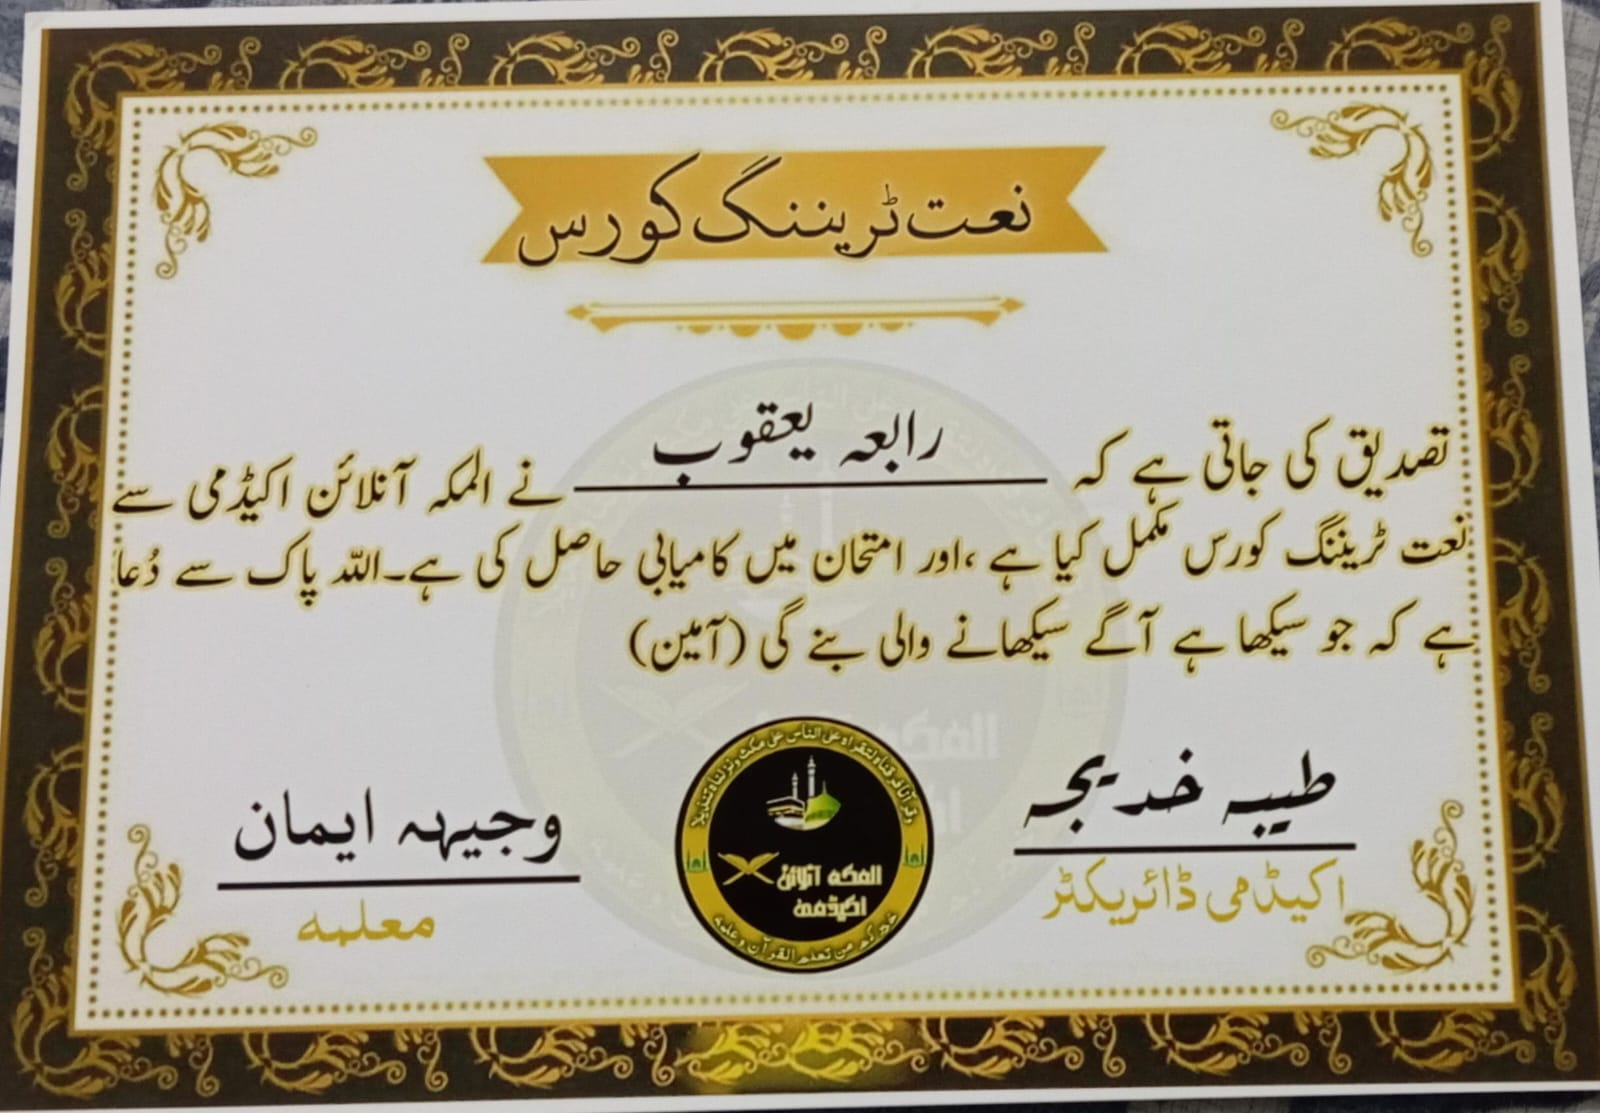 نعت ٹریننگ کورس
تصدیق کی جاتی ہے کہ رابعہ یعقوب نے المکہ آنلائن اکیڈمی سے
نعت ٹریننگ کورس مکمل کیا ہے ،اور امتحان میں کامیابی حاصل کی ہے۔اللہ پاک سے دُعا
ہے کہ جو سیکھا ہے آگے سیکھانے والی بنے گی (آمین)
طیبہ خدیجہ
اکیڈمی ڈائریکٹر
وجیہہ ایمان
معلمہ
وقرآنا فرقناه لتقراه على الناس على مكث ونزلناه تنزيلا
المکہ آنلائن
اکیڈمی
خيركم من تعلم القرآن وعلمه